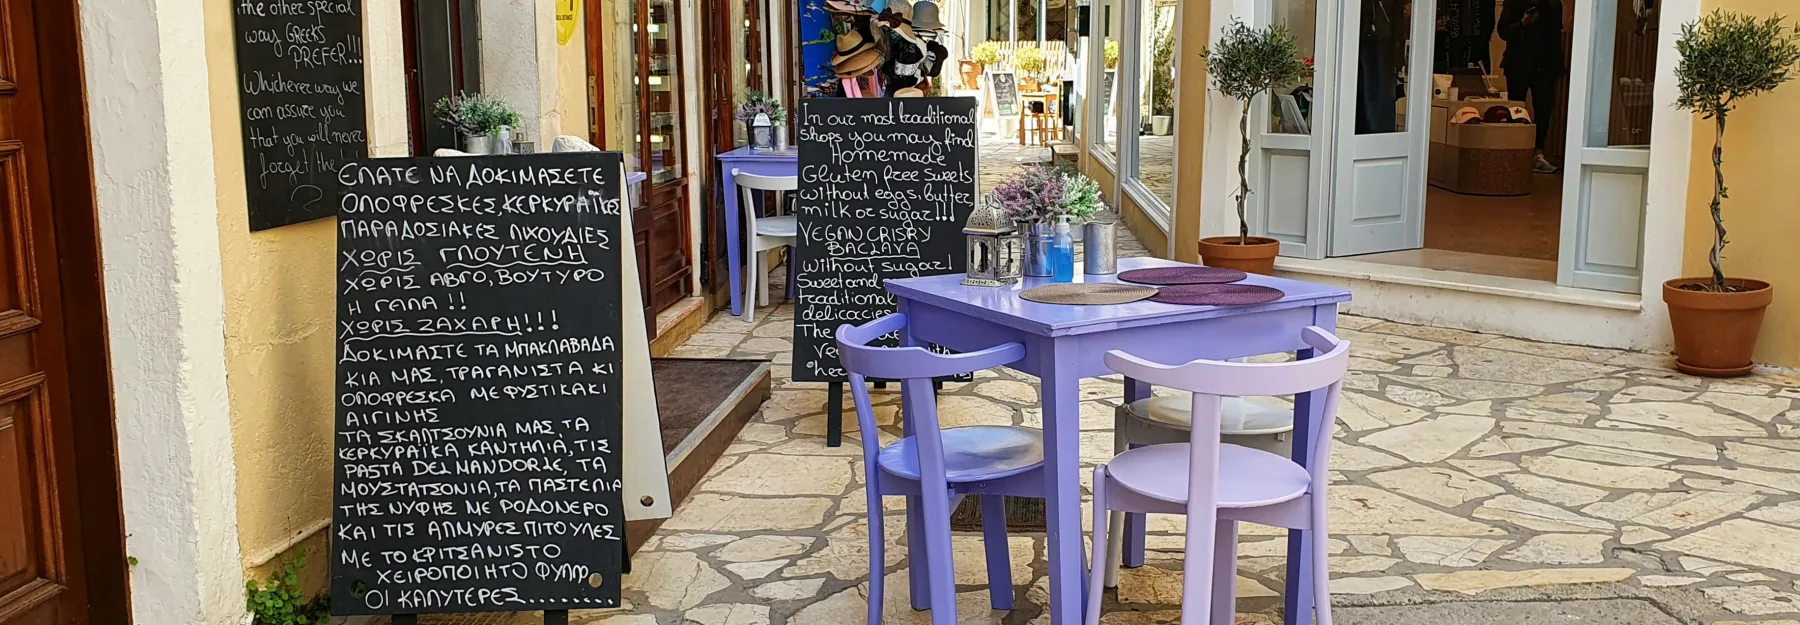 the other special
way GREEKS
PREFER!!!
Whichever way we
can assure you
that you will never
forget the
ΕΛΑΤΕ ΝΑ ΔΟΚΙΜΑΣΕΤΕ
ΟΛΟΦΡΕΣΚΕΣ, ΚΕΡΚΥΡΑΪΚΕΣ
ΠΑΡΑΔΟΣΙΑΚΕΣ ΛΙΧΟΥΔΙΕΣ
ΧΩΡΙΣ ΓΛΟΥΤΕΝΗ
ΧΩΡΙΣ ΑΒΓΟ, ΒΟΥΤΥΡΟ
Η ΓΑΛΑ !!
ΧΩΡΙΣ ΖΑΧΑΡΗ!!!
ΔΟΚΙΜΑΣΤΕ ΤΑ ΜΠΑΚΛΑΒΑΔΑ
ΚΙΑ ΜΑΣ, ΤΡΑΓΑΝΙΣΤΑ ΚΙ
ΟΛΟΦΡΕΣΚΑ ΜΕ ΦΥΣΤΙΚΑΚΙ
ΑΙΓΙΝΗΣ
ΤΑ ΣΚΑΛΤΣΟΥΝΙΑ ΜΑΣ, ΤΑ
ΚΕΡΚΥΡΑΪΚΑ ΚΑΝΤΗΛΙΑ, ΤΙΣ
PASTA DEL MANDORLE, ΤΑ
ΜΟΥΣΤΑΤΣΟΝΙΑ, ΤΑ ΠΑΣΤΕΛΙΑ
ΤΗΣ ΝΥΦΗΣ ΜΕ ΡΟΔΟΝΕΡΟ
ΚΑΙ ΤΙΣ ΑΛΜΥΡΕΣ ΠΙΤΟΥΛΕΣ
ΜΕ ΤΟ ΚΡΙΤΣΑΝΙΣΤΟ
ΧΕΙΡΟΠΟΙΗΤΟ ΦΥΛΛΟ
ΟΙ ΚΑΛΥΤΕΡΕΣ........
In our most traditional
shops you may find
Homemade
Gluten free sweets
without eggs, butter
milk or sugar!!!
VEGAN CRISPY
BACLAVA
without sugar!
Sweet and
traditional
delicacies
The
with